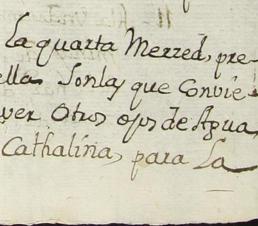 La quarta Merzed, pre-
ella Sonlas que Convie-
ver Otros ojos de Agua
Cathalina, para La